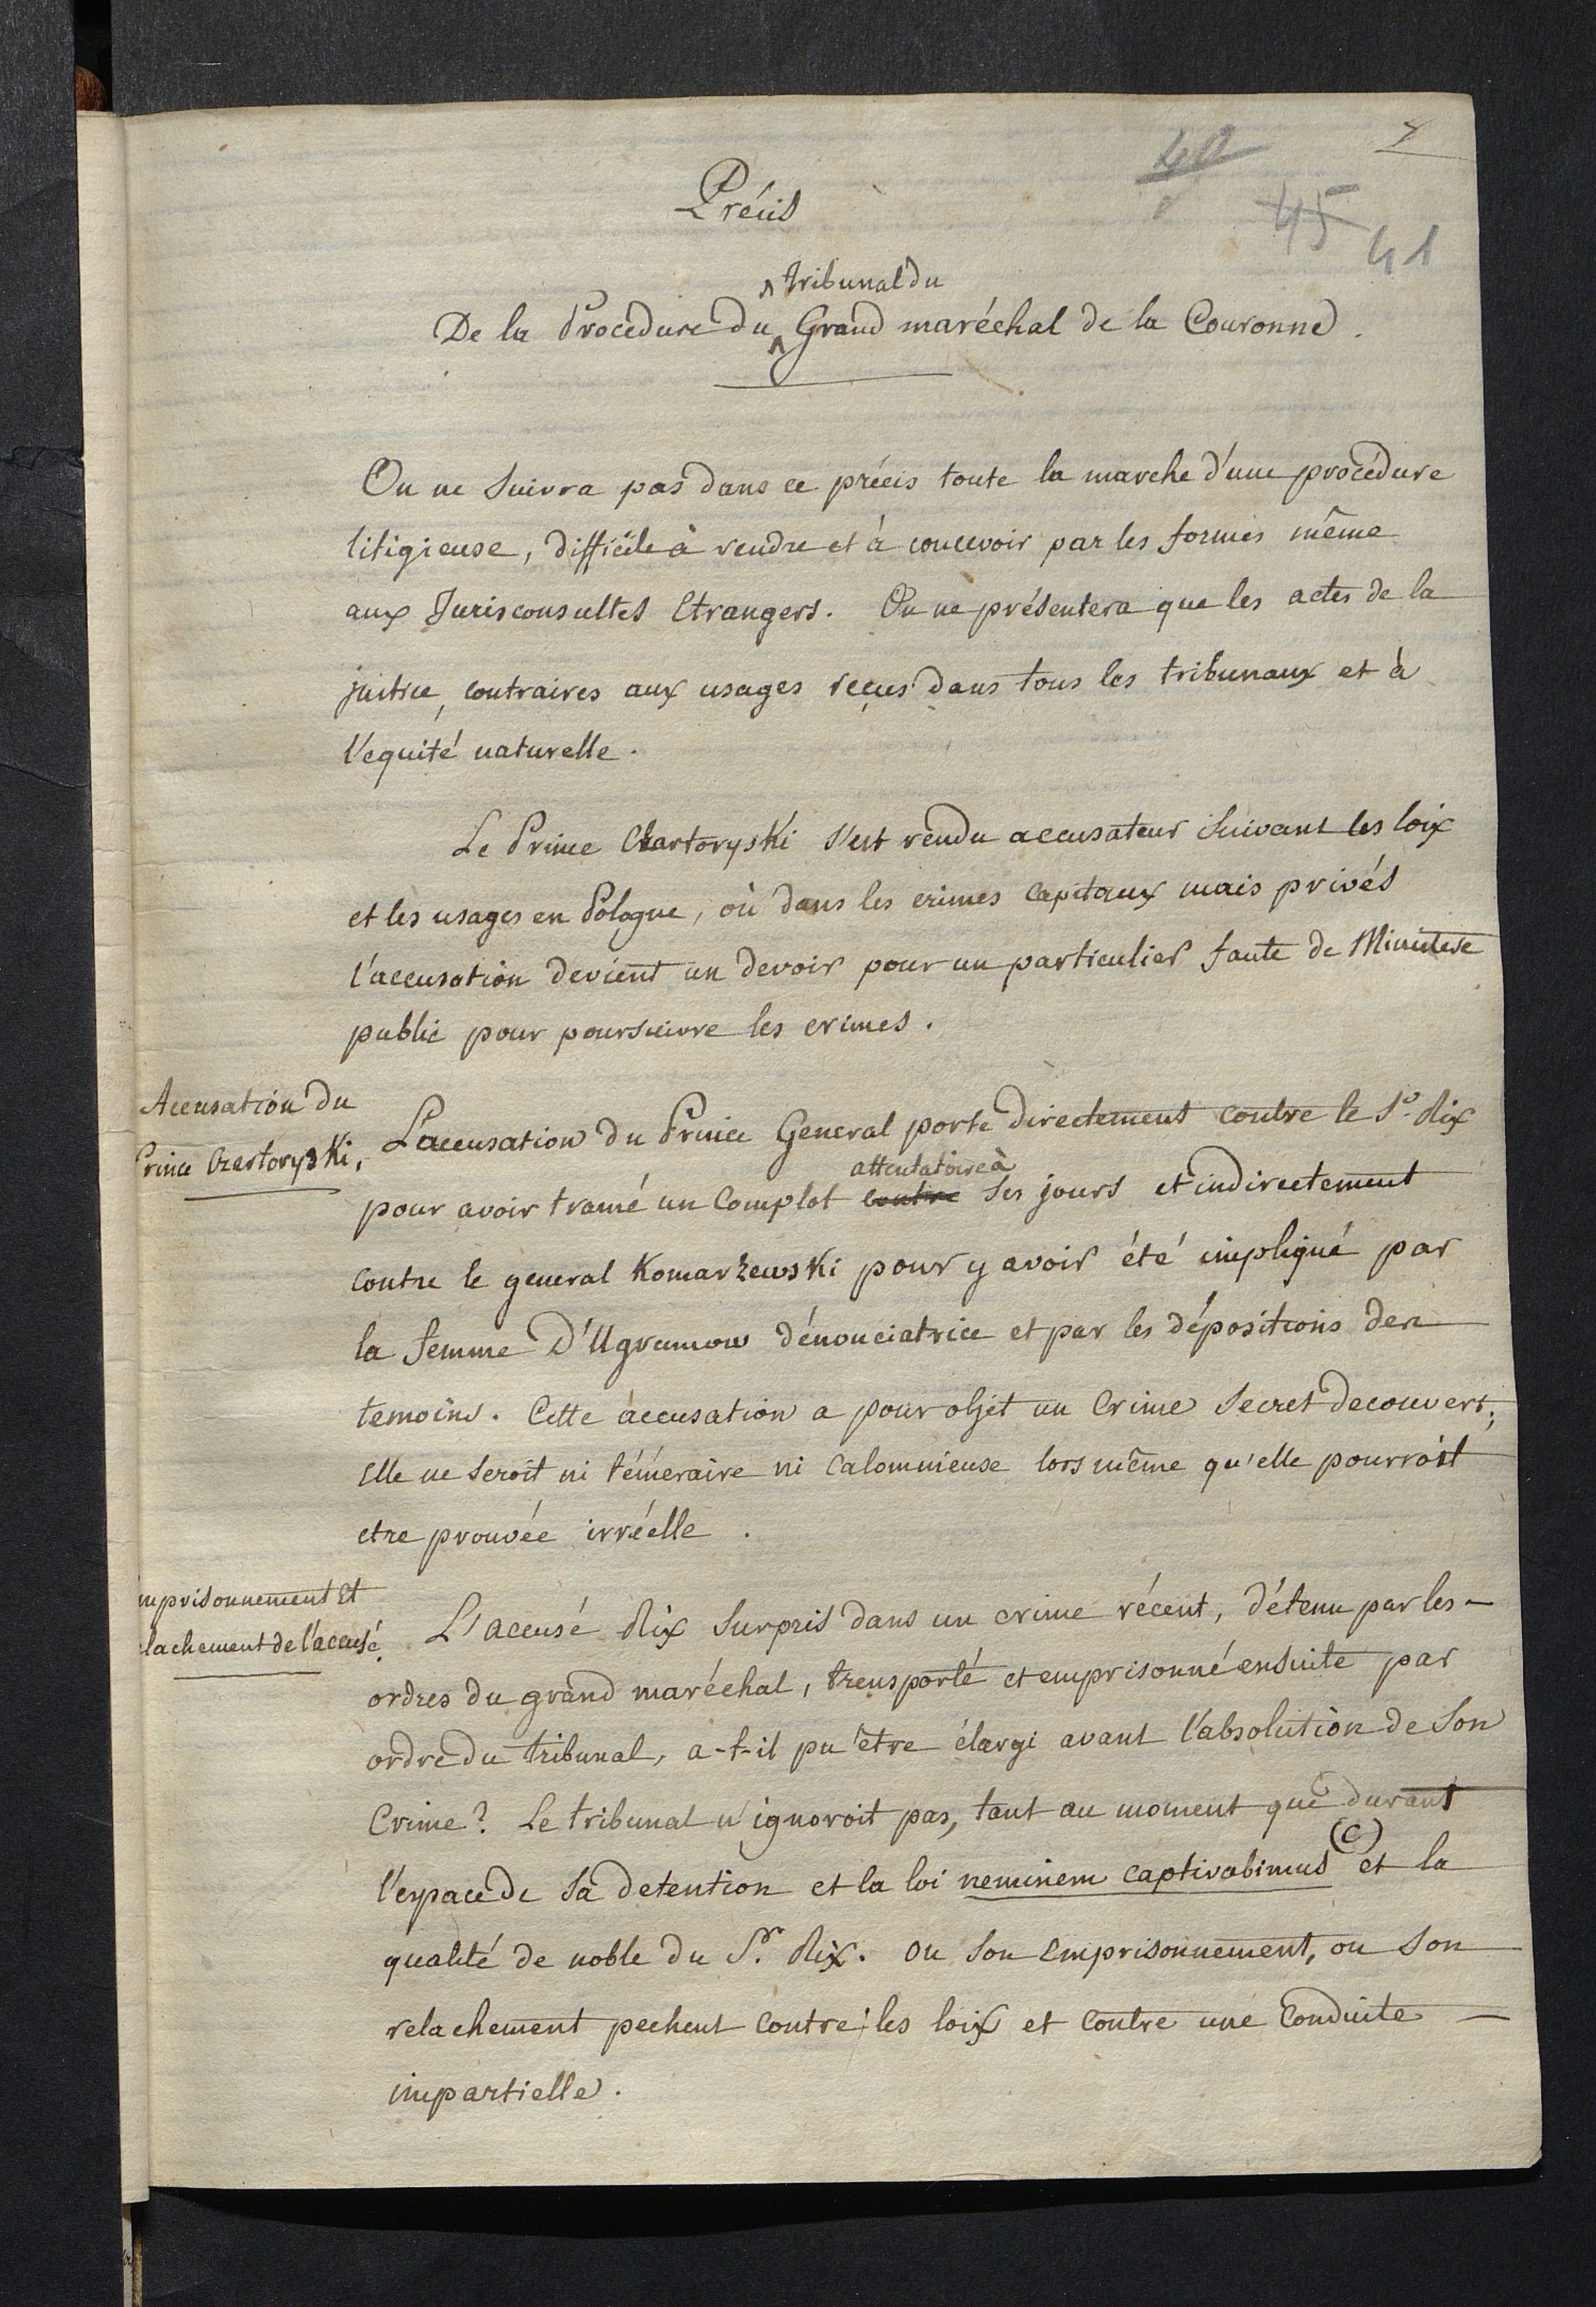 40
45
41
Précis
tribunal du
De la Procedure du Grand maréchal de la Couronne.
On ne Suivra pas dans ce précis toute la marche d'une procédure
litigieuse, difficile à rendre et à concevoir par les formes même
aux Jurisconsultes Etrangers. On ne présentera que les actes de la
justice, contraires aux usages reçus dans tous les tribunaux et à
l'equité naturelle.
Le Prince Czartoryski s'est rendu accusateur Suivant les loix
et les usages en Pologne, où dans les crimes capitaux mais privés
l'accusation devient un devoir pour un particulier faute de Ministere
public pour poursuivre les crimes.
Accusation du
Prince Czartoryski.
L'accusation du Prince General porte directement contre le Sr. Rix
attentatoire à
pour avoir tramé un Complot contre Ses jours et indirectement
contre le general Komarzewski pour y avoir été impliqué par
la femme D'Ugrumow dénonciatrice et par les dépositions des
temoins. Cette accusation a pour objet un Crime Secret decouvert;
Elle ne Seroit ni téméraire ni Calomnieuse lors même qu'elle pourroit
etre prouvée irréelle.
mprisonnement Et
lachement de l'accusé.
L'accusé Rix Surpris dans un crime récent, détenu par les
ordres du grand maréchal, transporté et emprisonné ensuite par
ordre du tribunal, a-t-il pu être élargi avant l'absolution de Son
Crime? Le tribunal n'ignoroit pas, tant au moment que durant
l'espace de Sa detention et la loi neminem captivabimus (c) et la
qualité de noble du Sr. Rix. ou Son Emprisonnement, ou Son
relachement pechent Contre les loix et Contre une Conduite
impartielle.